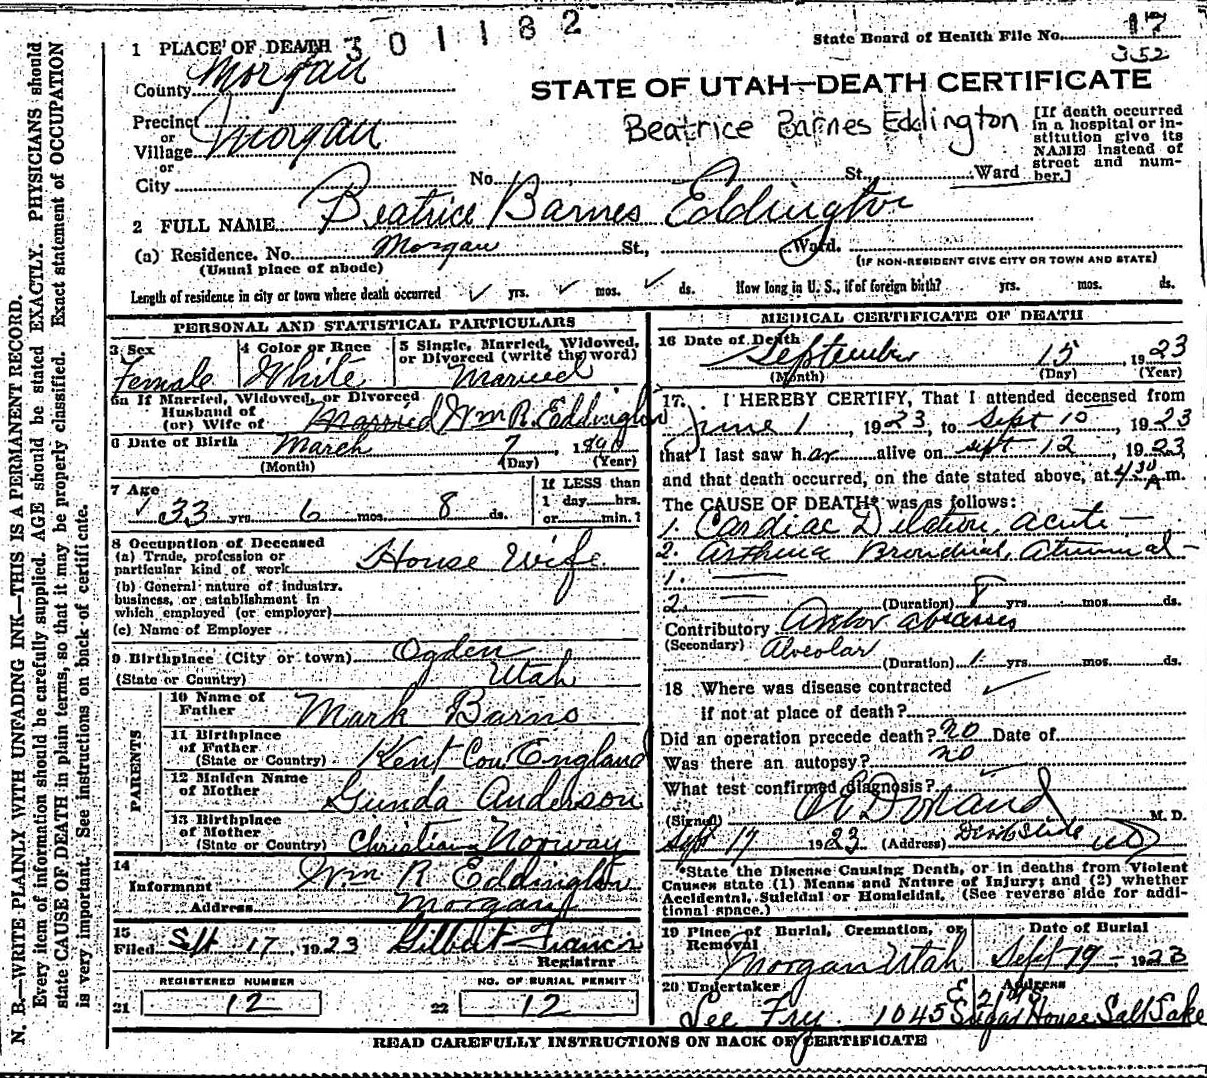 301182
State Board of Health File No. 17
352
1 PLACE OF DEATH
County Morgan
STATE OF UTAH—DEATH CERTIFICATE
Beatrice Barnes Eddington
[If death occurred in a hospital or institution give its NAME instead of street and number.]
Precinct
or
Village Morgan
or
City No. St. Ward
2 FULL NAME Beatrice Barnes Eddington
(a) Residence. No. Morgan St., Ward.
(Usual place of abode) (IF NON-RESIDENT GIVE CITY OR TOWN AND STATE)
Length of residence in city or town where death occurred ✓ yrs. ✓ mos. ✓ ds. How long in U. S., if of foreign birth? yrs. mos. ds.
PERSONAL AND STATISTICAL PARTICULARS
3 Sex
Female
4 Color or Race
White
5 Single, Married, Widowed, or Divorced (write the word)
Married
5a If Married, Widowed, or Divorced
Husband of
(or) Wife of Married Wm R. Eddington
6 Date of Birth March 7, 1890
(Month) (Day) (Year)
7 Age
33 yrs. 6 mos. 8 ds.
If LESS than
1 day hrs.
or min.?
8 Occupation of Deceased
(a) Trade, profession or
particular kind of work House Wife
(b) General nature of industry.
business, or establishment in
which employed (or employer)
(c) Name of Employer
9 Birthplace (City or town) Ogden
(State or Country) Utah
PARENTS
10 Name of
Father Mark Barns
11 Birthplace
of Father
(State or Country) Kent Cou England
12 Maiden Name
of Mother Gunda Anderson
13 Birthplace
of Mother
(State or Country) Christiana Norway
14
Informant Wm R Eddington
Address Morgan
15
Filed Sept 17, 1923 Gilbert Francis
Registrar
REGISTERED NUMBER
21 12
NO. OF BURIAL PERMIT
22 12
MEDICAL CERTIFICATE OF DEATH
16 Date of Death September 15 1923
(Month) (Day) (Year)
17. I HEREBY CERTIFY, That I attended deceased from
June 1, 1923, to Sept 15, 1923
that I last saw her alive on Sept 12, 1923,
and that death occurred, on the date stated above, at 4 30 A m.
The CAUSE OF DEATH* was as follows:
1. Cardiac Dilation, acute —
2. Asthma Bronchial,
1.
2. (Duration) 8 yrs. mos. ds.
Contributory abscesses
(Secondary) Alveolar
(Duration) 1 yrs. mos. ds.
18 Where was disease contracted ✓
if not at place of death?
Did an operation precede death? no Date of
Was there an autopsy? no
What test confirmed diagnosis?
(Signed) M. D.
Sept 17 1923 (Address) Devils Slide
*State the Disease Causing Death, or in deaths from Violent
Causes state (1) Means and Nature of Injury; and (2) whether
Accidental, Suicidal or Homicidal. (See reverse side for addi-
tional space.)
19 Place of Burial, Cremation, or
Removal
Morgan Utah
Date of Burial
Sept 19 - 1923
20 Undertaker
Lee Fry.
Address
1045 E 21st So
Sugar House Salt Lake
READ CAREFULLY INSTRUCTIONS ON BACK OF CERTIFICATE
N. B.—WRITE PLAINLY WITH UNFADING INK—THIS IS A PERMANENT RECORD.
Every item of information should be carefully supplied. AGE should be stated EXACTLY. PHYSICIANS should
state CAUSE OF DEATH in plain terms, so that it may be properly classified. Exact statement of OCCUPATION
is very important. See instructions on back of certificate.